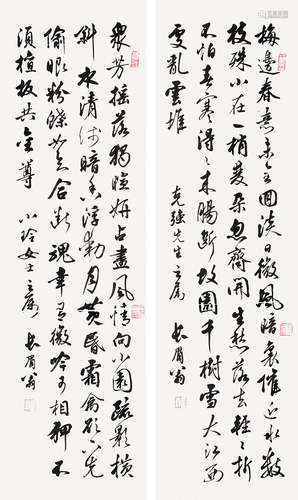 梅邊春意未全回淡日微風暗裏催近水數
枝殊小在一梢雙朵忽齊開生愁落去輕輕折
不怕春寒得得来腸斷故園千樹雪大江西
亂雲堆 克強先生之属 長眉翁
眾芳摇落獨暄妍占盡風情向小園疏影橫
斜水清浅暗香浮動月黃昏霜禽欲下先
偷眼粉蝶如知合断魂幸有微吟可相狎不
須檀板共金尊 小玲女士之属 長眉翁